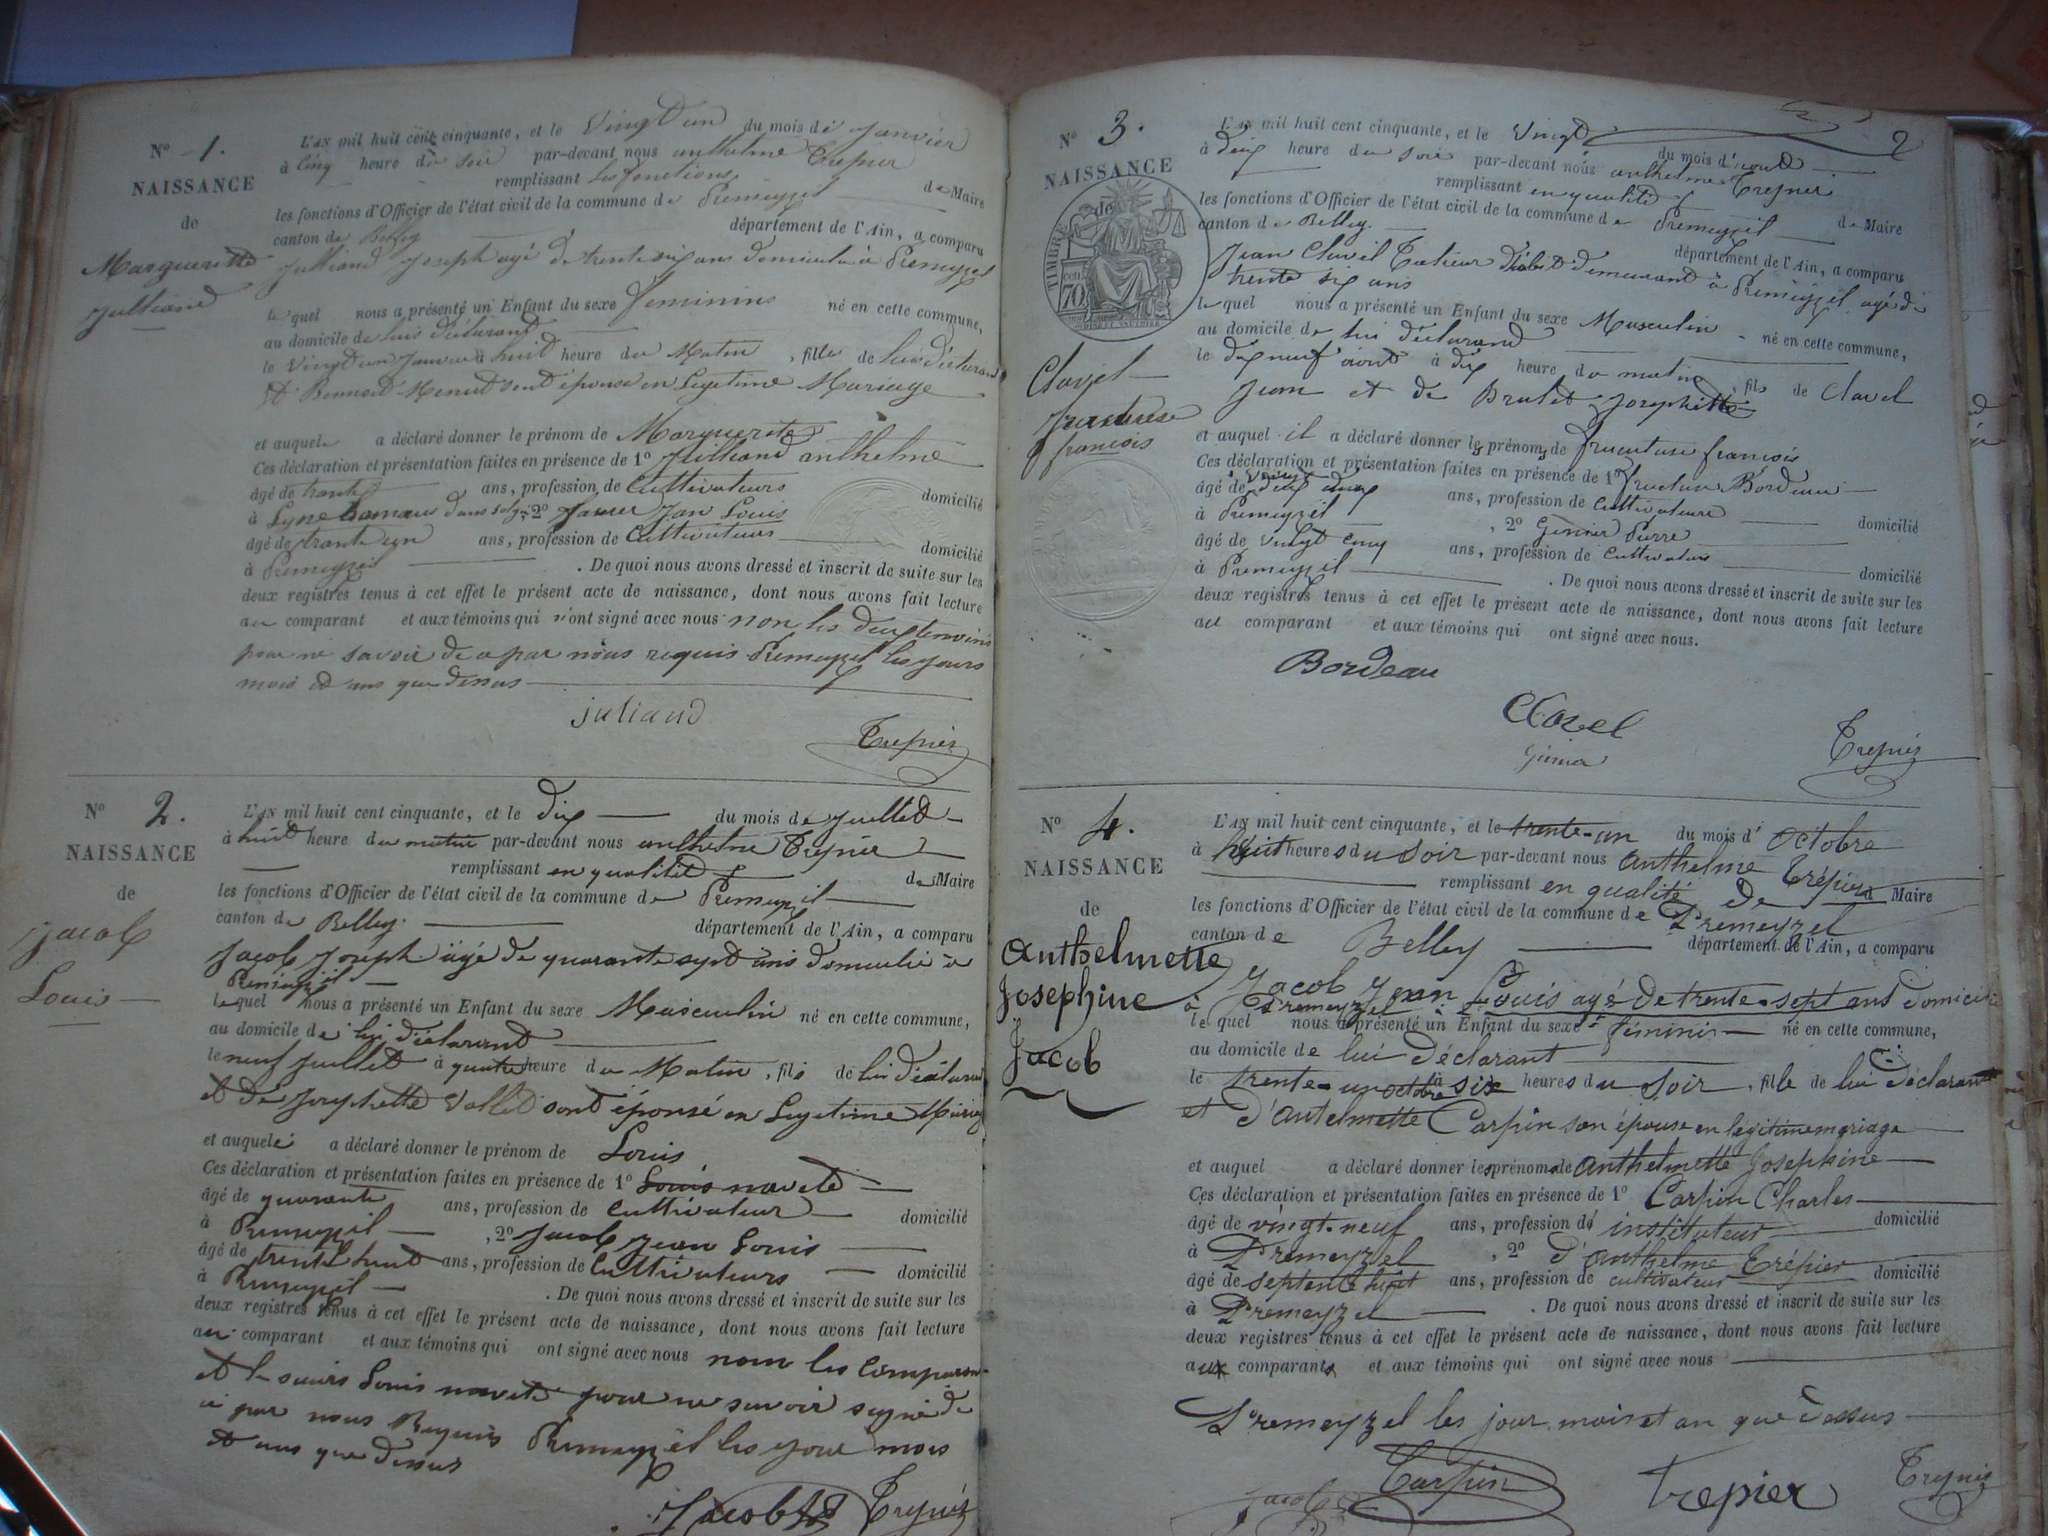 N° 1.
NAISSANCE
de
Margueritte
Julliand
L'AN mil huit cent cinquante, et le Vingt un du mois de Janvier
à Cinq heure du soir par-devant nous anthelme Trepier
remplissant les fonctions de Maire
les fonctions d'Officier de l'état civil de la commune de Premeyzel
canton de Belley département de l'Ain, a comparu
Julliand Joseph agé de trente six ans domicilié à Premeyzel
le quel nous a présenté un Enfant du sexe feminine né en cette commune,
au domicile de luis déclarand
le Vingt un Janvier à huit heure du Matin, fille de luis déclarand
et Bennoit Menut sont épouse en Legetime Mariage
et auquel a déclaré donner le prénom de Marguerite
Ces déclaration et présentation faites en présence de 1° Julliand anthelme
âgé de trante ans, profession de Cultivateurs domicilié
à 2° Jan Louis
âgé de trante un ans, profession de Cultivateurs domicilié
à Premeyzel. De quoi nous avons dressé et inscrit de suite sur les
deux registres tenus à cet effet le présent acte de naissance, dont nous avons fait lecture
au comparant et aux témoins qui n'ont signé avec nous non les deux temoins
pour ne savoir de a par nous requis Premeyzel les jours
mois et ans que dessus
juliand
Trepier
N° 2.
NAISSANCE
de
Jacob
Louis
L'AN mil huit cent cinquante, et le dix du mois de Juillet
à huit heure du matin par-devant nous anthelme Trepier
remplissant en qualité de Maire
les fonctions d'Officier de l'état civil de la commune de Premeyzel
canton de Belley département de l'Ain, a comparu
Jacob Joseph âgé de quarante sept ans domicilié à
Premeyzel
le quel nous a présenté un Enfant du sexe Masculin né en cette commune,
au domicile de lui déclarant
le neuf Juillet à quatre heure du Matin, fils de lui déclarant
et de Josephette Vallet sont éponsé en Legetime Mariage
et auquel a déclaré donner le prénom de Louis
Ces déclaration et présentation faites en présence de 1° Louis navete
âgé de quarante ans, profession de Cultivateur domicilié
à Premeyzel, 2° Jacob Jean Louis
âgé de trente huit ans, profession de Cultivateurs domicilié
à Premeyzel. De quoi nous avons dressé et inscrit de suite sur les
deux registres tenus à cet effet le présent acte de naissance, dont nous avons fait lecture
au comparant et aux témoins qui ont signé avec nous nom les comparant
et le sieurs Louis navete pour ne savoir signé de
ce par nous Requis Premeyzel les jour mois
et ans que dessus
Jacob
Trepier
2
N° 3.
NAISSANCE
de
TIMBRE
70
Clavel
fructueuse
francois
L'AN mil huit cent cinquante, et le Vingt du mois d'aout
à dix heure du soir par-devant nous anthelme Trepier
remplissant en qualité de Maire
les fonctions d'Officier de l'état civil de la commune de Premeyzel
canton de Belley. département de l'Ain, a comparu
Jean Clavel demeurant à Premeyzel agé de
trente six ans
le quel nous a présenté un Enfant du sexe Masculin né en cette commune,
au domicile de lui déclarand
le dix neuf aout à dix heure du matin, fils de Clavel
Jean et de Brulet Josephette
et auquel il a déclaré donner les prénoms de fructueuse francois
Ces déclaration et présentation faites en présence de 1° Bordeau
âgé de ans, profession de Cultivateure domicilié
à Premeyzel, 2° Génier Pierre
âgé de vingt cinq ans, profession de Cultivateur domicilié
à Premeyzel. De quoi nous avons dressé et inscrit de suite sur les
deux registres tenus à cet effet le présent acte de naissance, dont nous avons fait lecture
au comparant et aux témoins qui ont signé avec nous.
Bordeau
Clavel
Génier
Trepier
N° 4.
NAISSANCE
de
Anthelmette
Josephine
Jacob
L'AN mil huit cent cinquante, et le trente-un du mois d'Octobre
à huit heures du Soir par-devant nous Anthelme Trépier
remplissant en qualité de Maire
les fonctions d'Officier de l'état civil de la commune de Premeyzel
canton de Belley département de l'Ain, a comparu
Jacob Jean Louis agé de trente-sept ans domicilié
à Premeyzel
le quel nous a présenté un Enfant du sexe féminin né en cette commune,
au domicile de lui déclarant
le trente-un octobre à six heures du Soir, fille de lui déclarant
et d'antelmette Carpin son épouse en légitime mariage
et auquel a déclaré donner les prénoms de Anthelmette Josephine
Ces déclaration et présentation faites en présence de 1° Carpin Charles
âgé de vingt-neuf ans, profession d'instituteur domicilié
à Premeyzel, 2° d'anthelme Trépier
âgé de septente huit ans, profession de cultivateur domicilié
à Premeyzel. De quoi nous avons dressé et inscrit de suite sur les
deux registres tenus à cet effet le présent acte de naissance, dont nous avons fait lecture
aux comparants et aux témoins qui ont signé avec nous
Premeyzel les jour mois et an que dessus
Jacob
Carpin
Trepier
Trepier